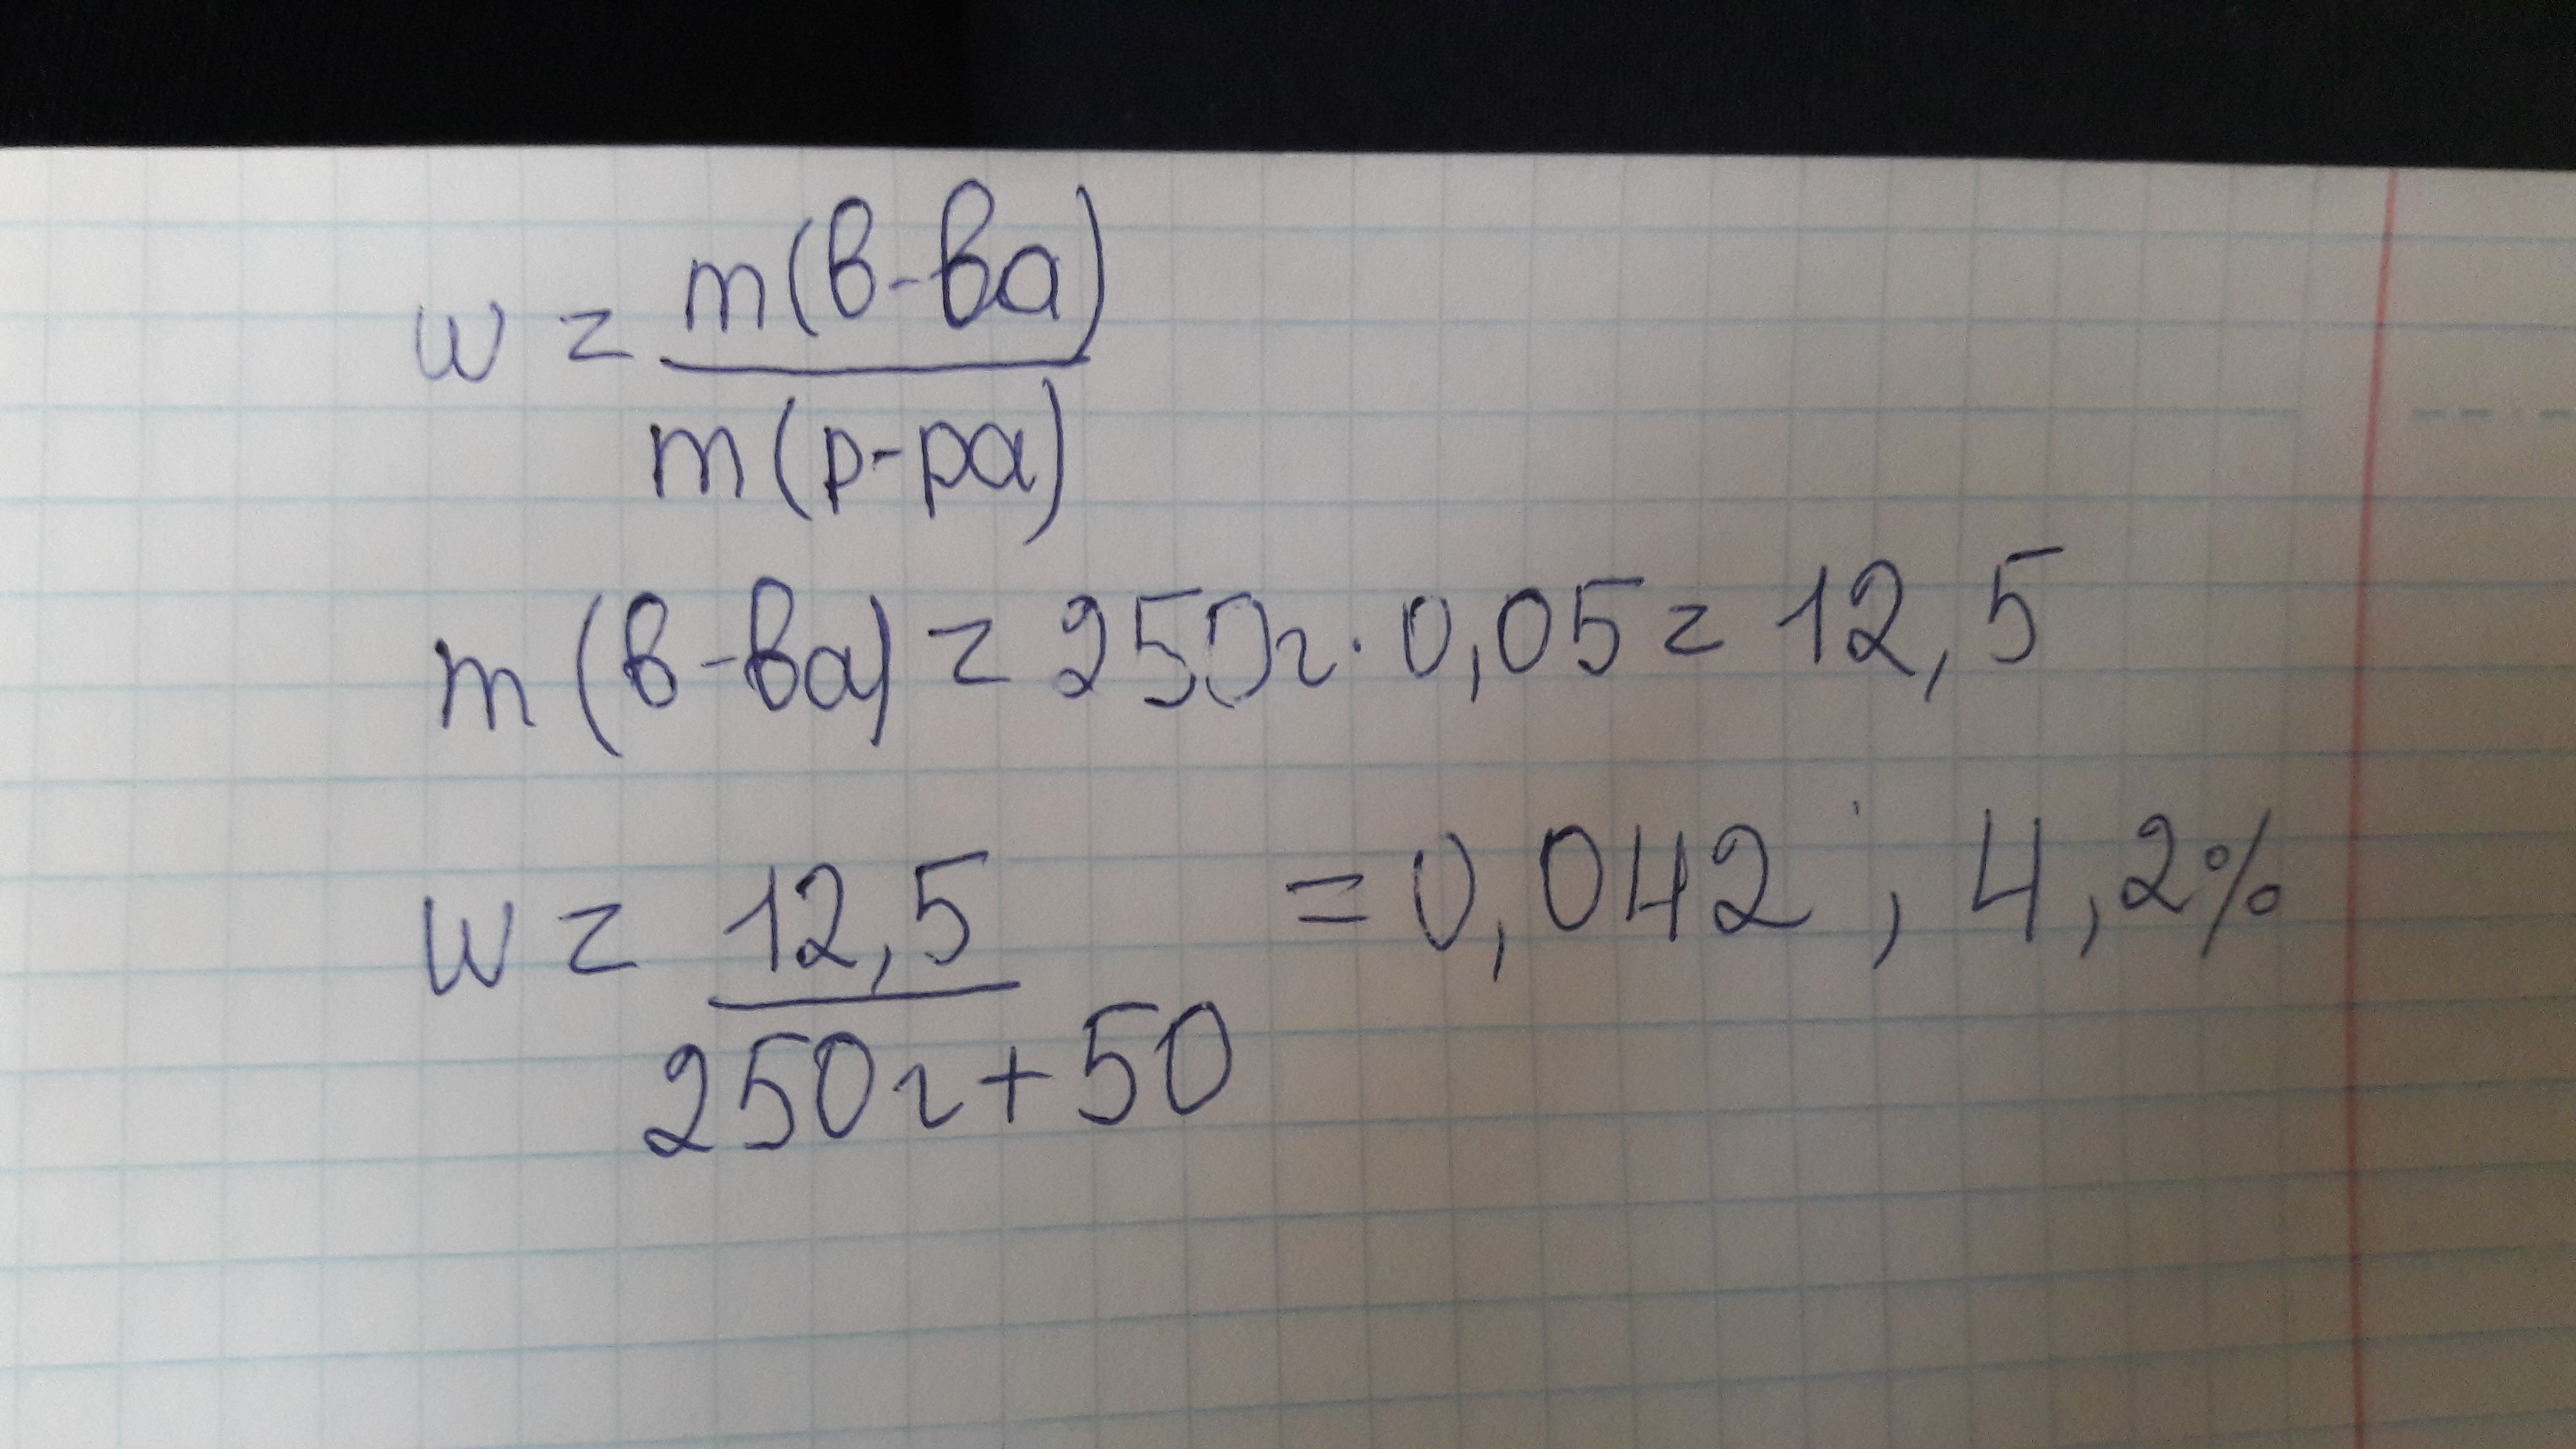 w = m(в-ва) / m(р-ра)
m(в-ва) = 250г · 0,05 = 12,5
w = 12,5 / 250г + 50 = 0,042 , 4,2%